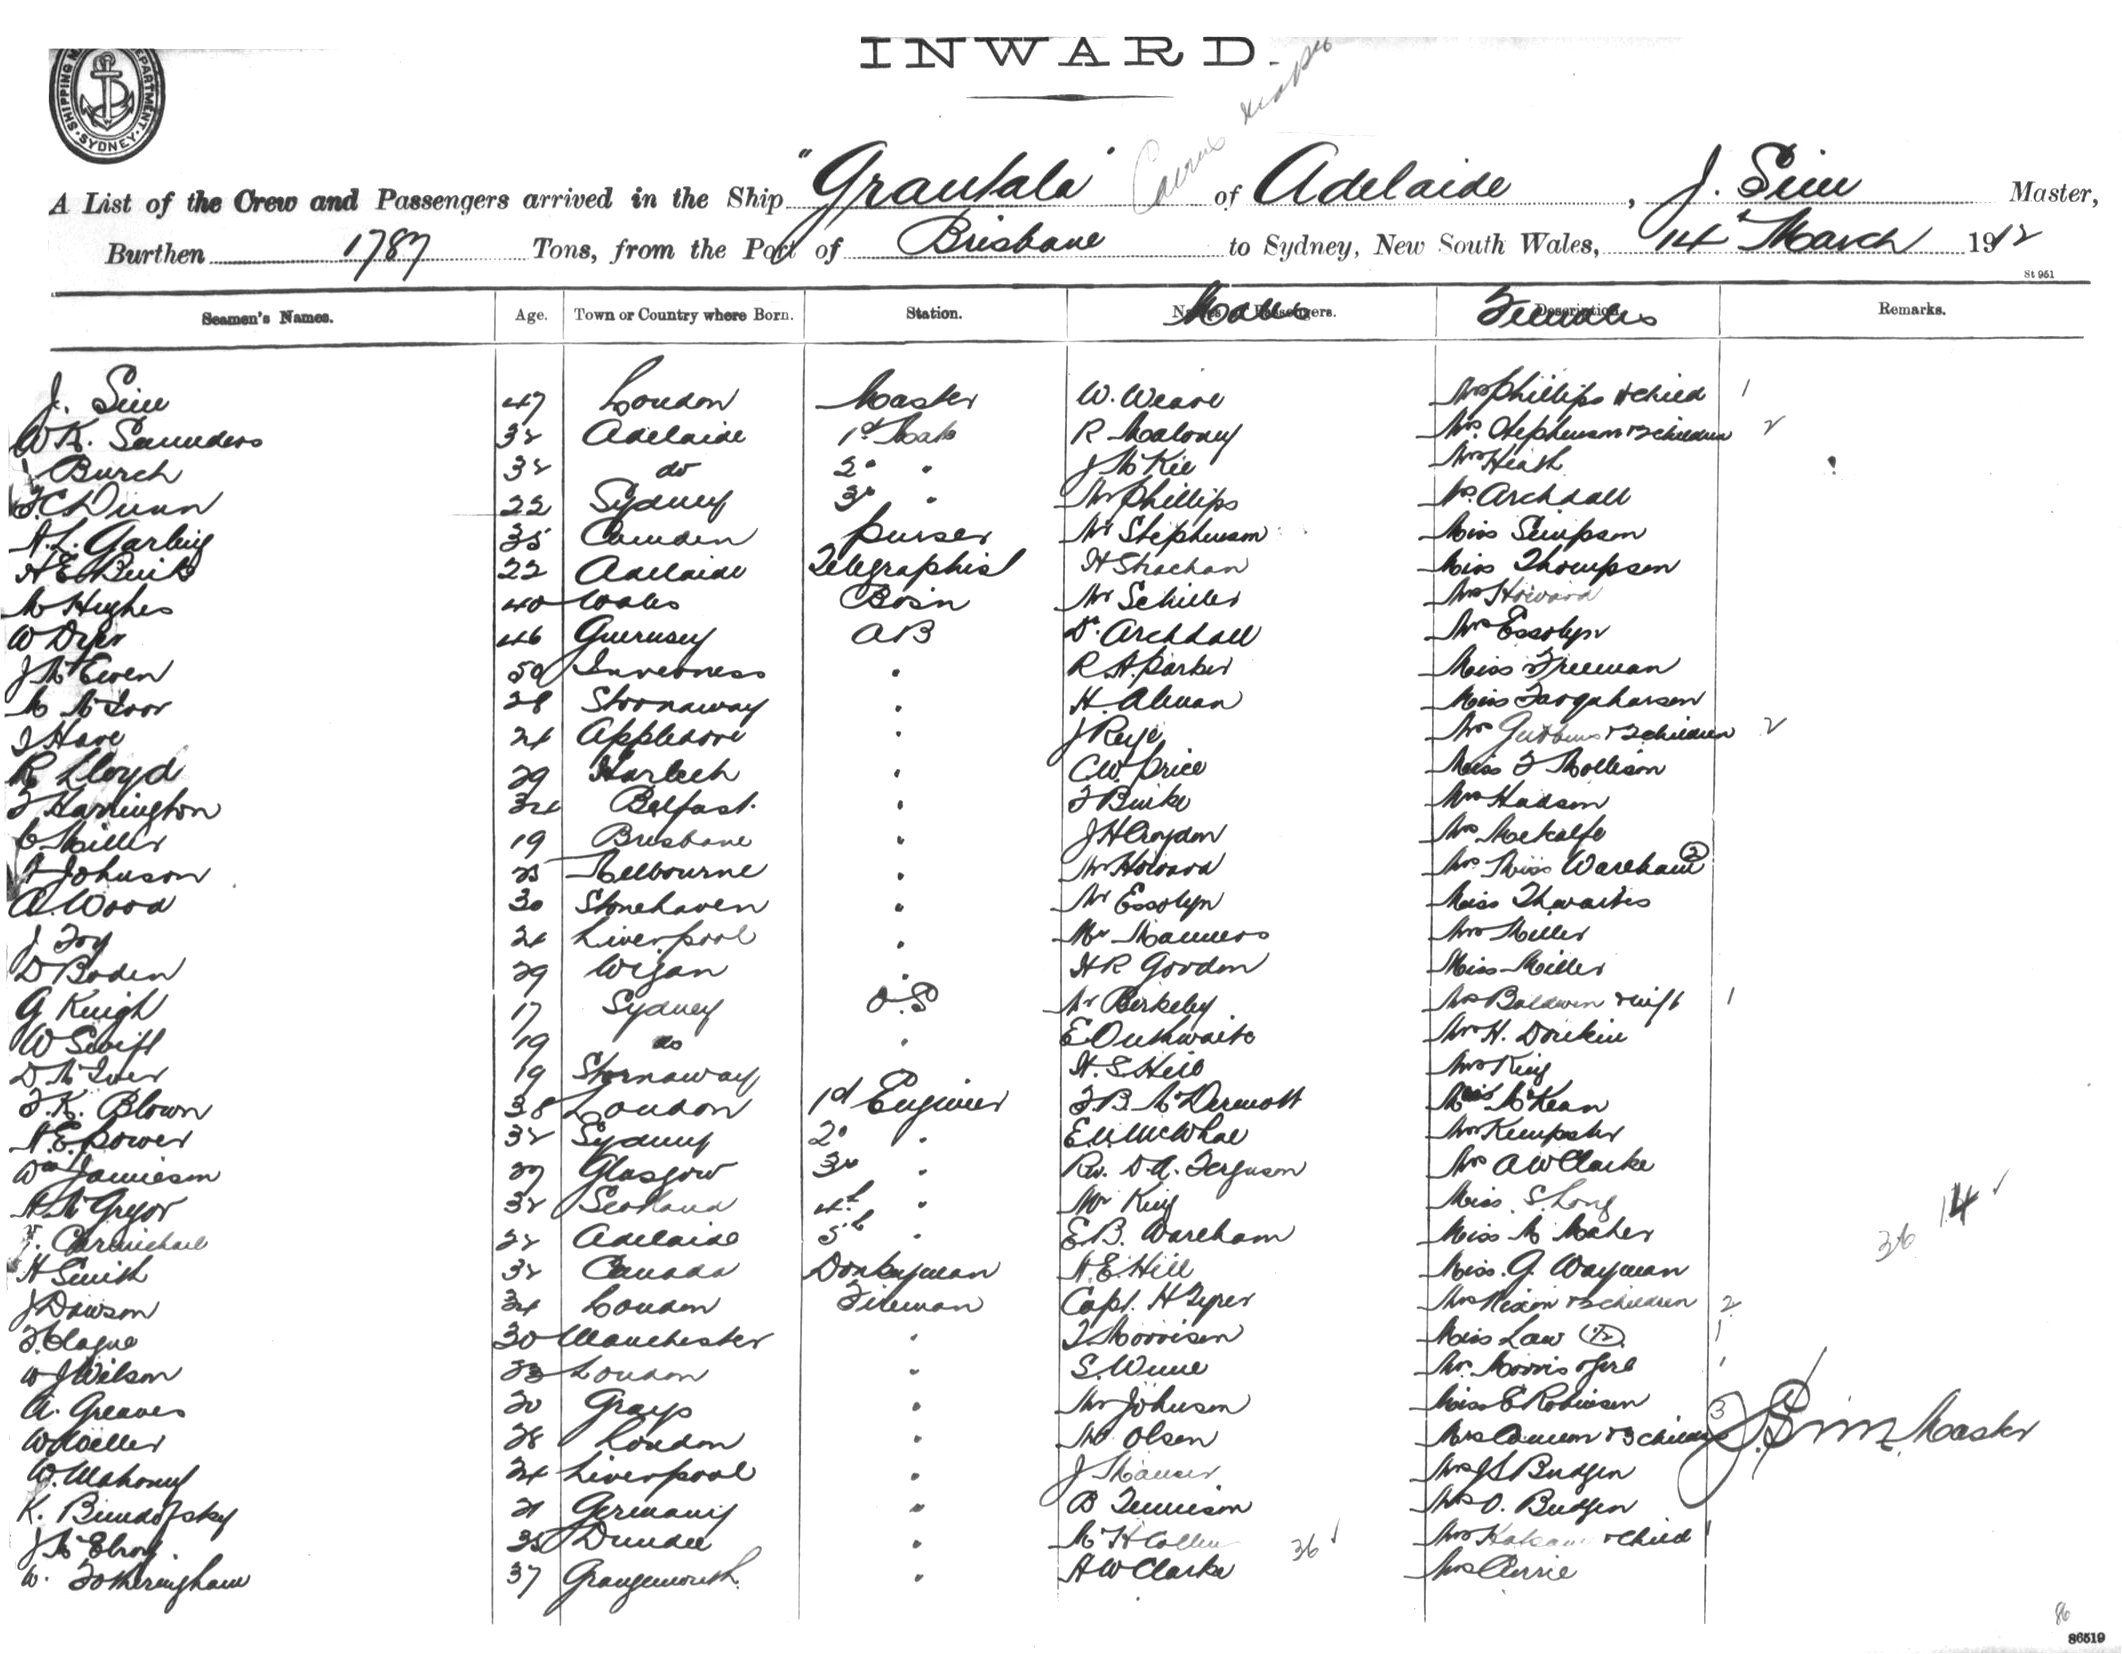 INWARD.
SHIPPING DEPARTMENT. SYDNEY
A List of the Crew and Passengers arrived in the Ship "Grantala" of Adelaide, J. Sim Master,
Burthen 1787 Tons, from the Port of Brisbane to Sydney, New South Wales, 14 March 1912
St 951
Seamen's Names. Age. Town or Country where Born. Station. Males Females Remarks.
J. Sim 47 London Master W. Weare Mrs Phillips & Child 1
W K. Saunders 32 Adelaide 1st Mate R Maloney Mrs. Stephenson & 2 children 2
Burch 32 do 2d " J McKie Mrs Heath
F. C Dunn 22 Sydney 3d " Mr Phillips Mrs. Archdall
A. L. Garling 35 Camden Purser Mr Stephenson Miss Simpson
H E Buik 22 Adelaide Telegraphist H Strachan Miss Thompson
M Hughes 40 Wales Bosn Mr Schiller Mrs Howard
W Dyer 46 Guernsey AB Dr. Archdall Mrs Essolyn
J McEwen 50 Inverness " R. A. Parker Miss Freeman
M McIvor 28 Stornaway " H. Alman Miss Farquharson
J Hare 24 Appledore " J Reye Mrs & 2 children 2
R Lloyd 29 Harlech " C. W. Price Miss F Mollison
F Harrington 34 Belfast. " F Burke Mrs Hudson
C Miller 19 Brisbane " J H Croydon Mrs Metcalfe
A Johnson 23 Melbourne " Mr Howard Mrs. Miss Wareham 2
A. Wood 30 Stonehaven " Mr Essolyn Miss Thwaites
J Foy 24 Liverpool " Mr Manners Mrs Miller
D Boden 29 Wigan " H R Gordon Miss Miller
G Knigh 17 Sydney O.S Mr Berkeley Mrs Baldwin & inft 1
W Swift 19 do " E Outhwaite Mrs H. Donkin
D McIver 19 Stornaway H. S. Hill Mrs King
F. K. Blown 38 London 1st Engineer F. B. McDermott Miss McKean
A. E. Power 32 Sydney 2d " E. U. McWhae Mrs Kempster
Wm Jamieson 27 Glasgow 3rd " Rev. D. A. Ferguson Mrs A W Clarke
A McGregor 32 Scotland 4th " Mr King Miss. S. Long 14
Carmichael 22 Adelaide 5th " E. B. Wareham Miss M Maher 36
H Smith 32 Canada Donkeyman A. E. Hill Miss. G. Wayman
J Dawson 34 London Fireman Capt. H Typer Mrs Nixon & 2 children 2
F. Clague 30 Manchester " T. Morrison Miss Law (2) 1
W J Wilson 23 London " S. Winne Mr. Morris & girl 1
A. Greaves 20 Grays " Mr Johnson Miss E Robinson
W Weller 28 London " Mr Olsen Mrs Cameron & 3 children 3 J. Sim Master
W. Mahony 24 Liverpool " J Manser Mrs J S Budgen
K. Bundofsky 21 Germany " B Tennison Mrs O. Budgen
J McElroy 35 Dundee " M H Collin 36 Mrs & Child 1
W. Fotheringham 37 Grangemouth " A W Clarke Mrs Currie
86
86519